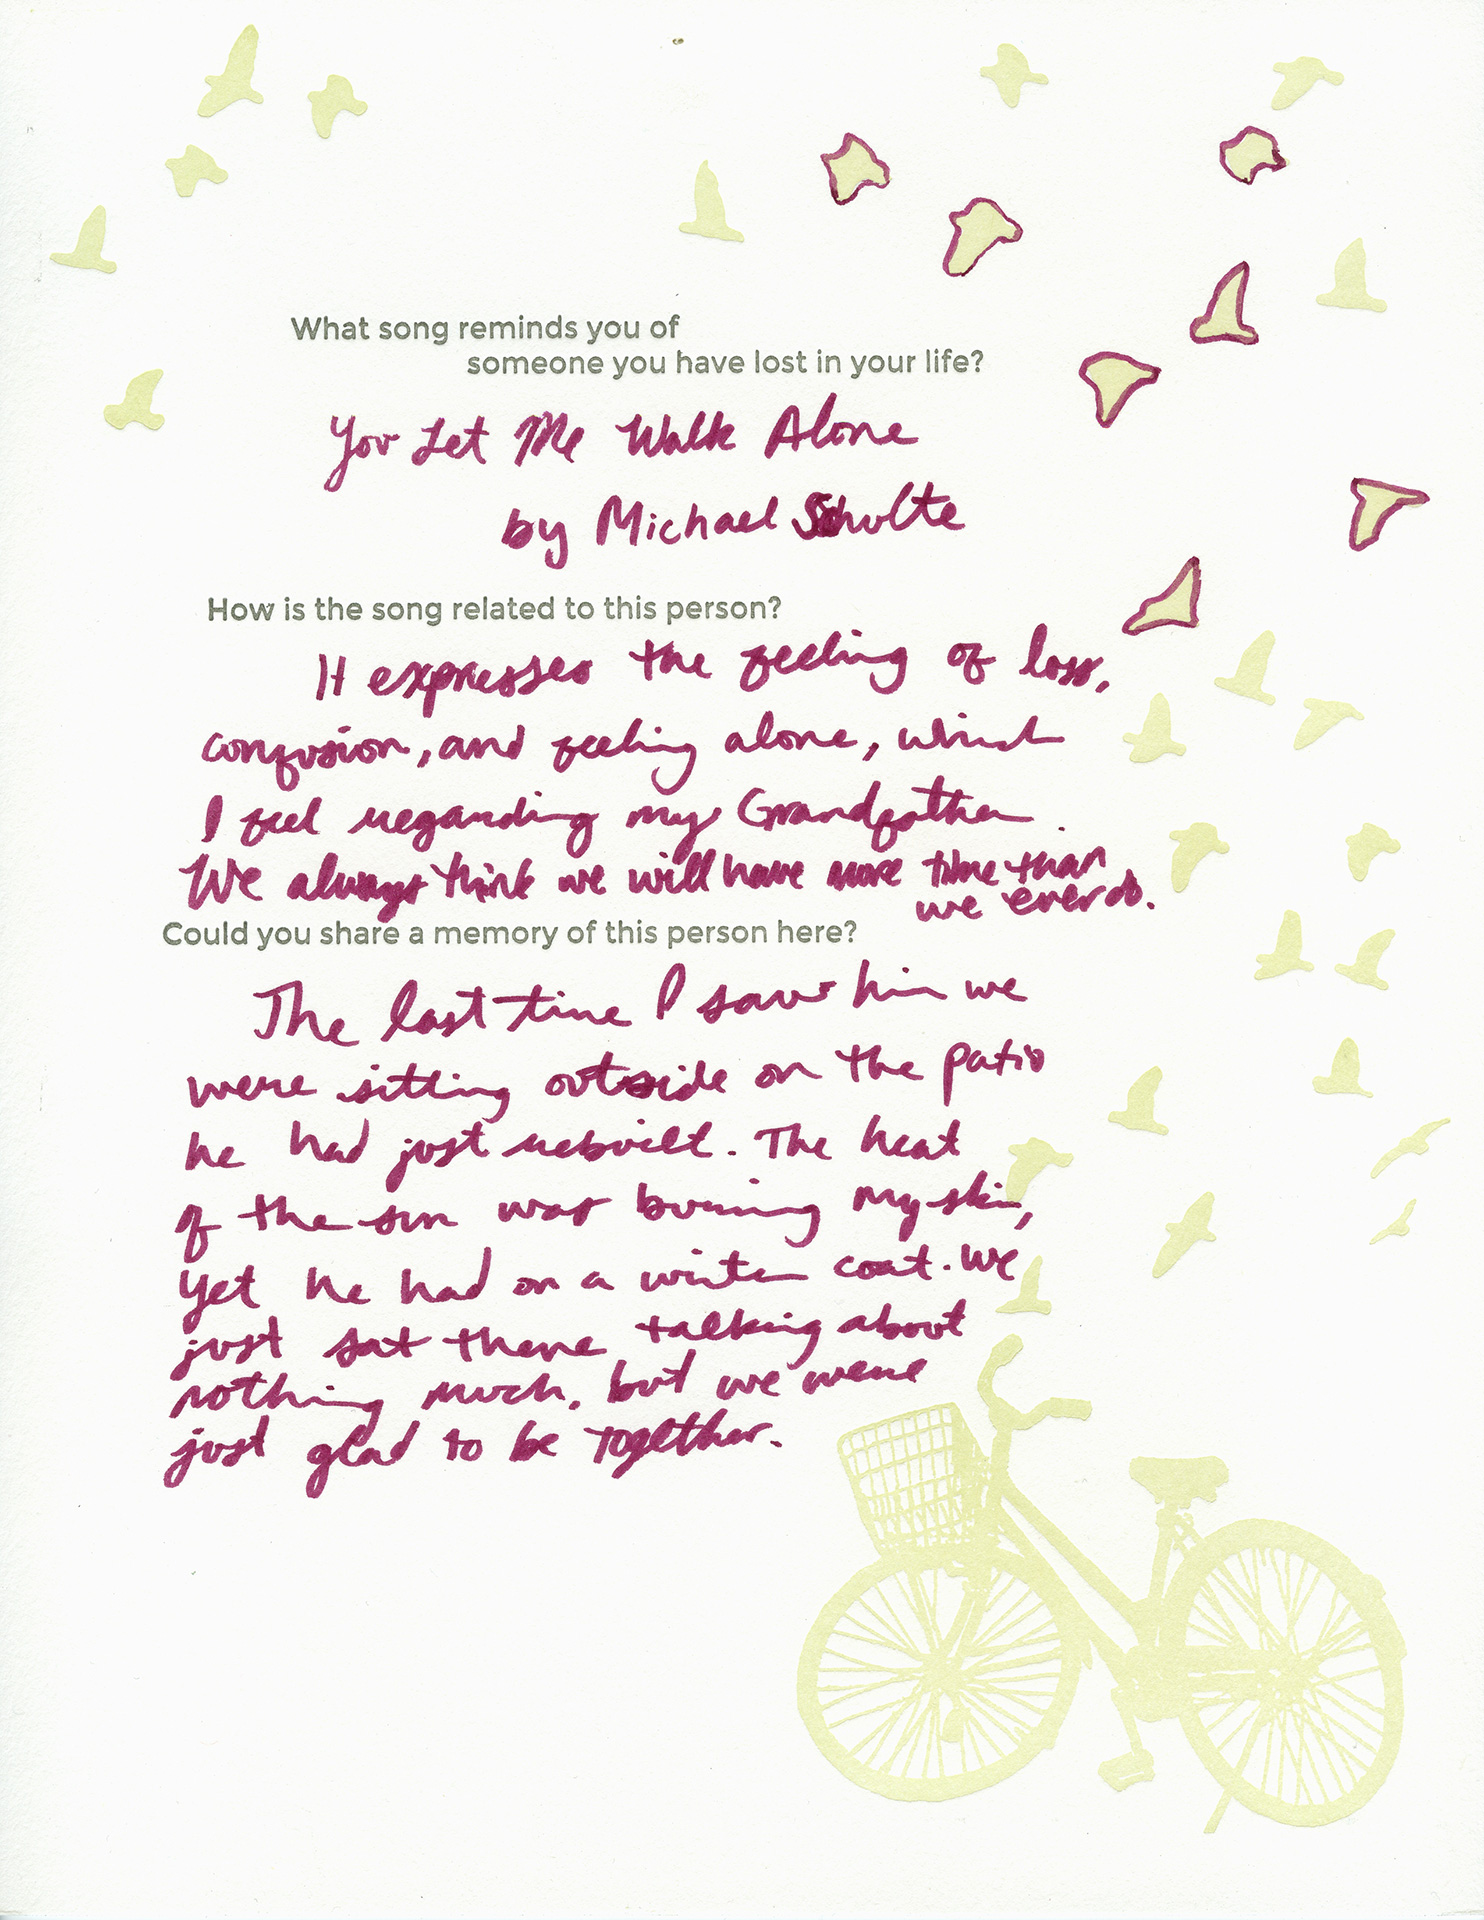 What song reminds you of
someone you have lost in your life?
You Let Me Walk Alone
by Michael Schulte
How is the song related to this person?
It expresses the feeling of loss,
confusion, and feeling alone, which
I feel regarding my Grandfather.
We always think we will have more time than
we ever do.
Could you share a memory of this person here?
The last time I saw him we
were sitting outside on the patio
he had just rebuilt. The heat
of the sun was burning my skin,
yet he had on a winter coat. We
just sat there talking about
nothing much, but we were
just glad to be together.